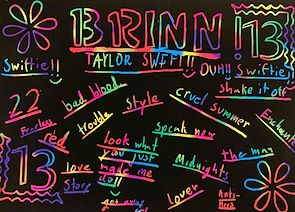 BRINN
13
TAYLOR SWIFT!!
Swiftie!!
DUH!! Swiftie!!
shake it off
22
bad blood
style
cruel summer
Fearless
trouble
speak now
Enchanted
red
look what
you just
made me
do!!
13
love
Story
Midnights
the man
lover
Anti-
Hero